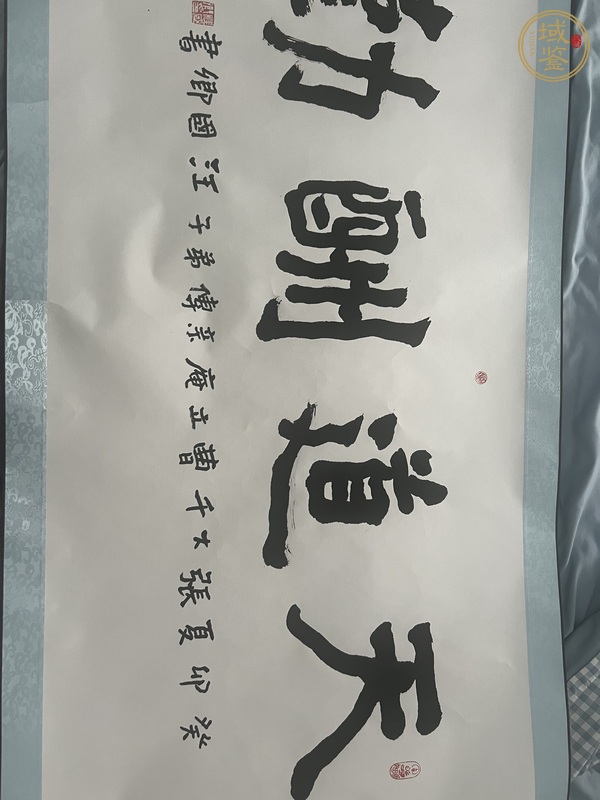 天道酬勤
癸卯夏張大千曹立庵親傳弟子汪國卿書
域鉴